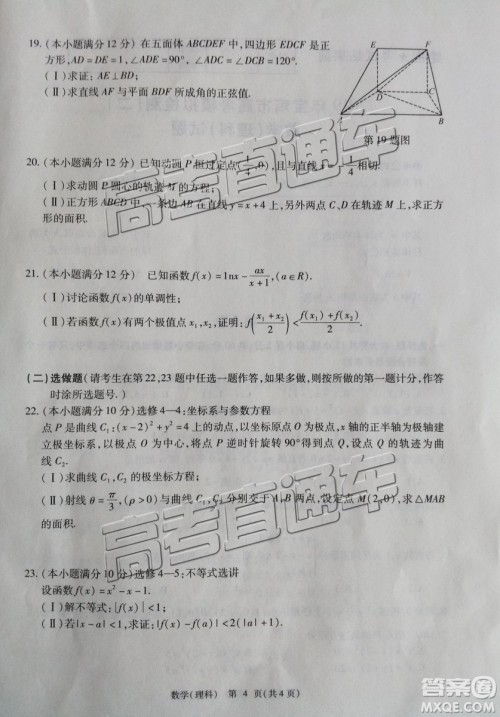 19. (本小题满分12分) 在五面体ABCDEF中,四边形EDCF是正
方形,AD=DE=1,∠ADE=90°,∠ADC=∠DCB=120°.
(Ⅰ)求证:AE⊥BD;
(Ⅱ)求直线AF与平面BDF所成角的正弦值.
E
F
D
C
A
B
第19题图
20. (本小题满分12分) 已知动圆P恒过定点(1/4,0),且与直线x=-1/4相切.
(Ⅰ)求动圆P圆心的轨迹M的方程;
(Ⅱ)正方形ABCD中,一条边AB在直线y=x+4上,另外两点C、D在轨迹M上,求正方
形的面积.
21. (本小题满分12分) 已知函数f(x)=lnx-ax/(x+1),(a∈R).
(Ⅰ)讨论函数f(x)的单调性;
(Ⅱ)若函数f(x)有两个极值点x₁,x₂,证明:f((x₁+x₂)/2)<(f(x₁)+f(x₂))/2.
(二)选做题(请考生在第22,23题中任选一题作答,如果多做,则按所做的第一题计分,作答
时涂所选题号.)
22. (本小题满分10分)选修4—4:坐标系与参数方程
点P是曲线C₁:(x-2)²+y²=4上的动点,以坐标原点O为极点,x轴的正半轴为极轴建
立极坐标系,以极点O为中心,将点P逆时针旋转90°得到点Q,设点Q的轨迹方程为曲
线C₂.
(Ⅰ)求曲线C₁,C₂的极坐标方程;
(Ⅱ)射线θ=π/3,(ρ>0)与曲线C₁,C₂分别交于A,B两点,设定点M(2,0),求△MAB
的面积.
23. (本小题满分10分)选修4—5:不等式选讲
设函数f(x)=x²-x-1.
(Ⅰ)解不等式:|f(x)|<1;
(Ⅱ)若|x-a|<1,求证:|f(x)-f(a)|<2(|a|+1).
数学(理科) 第 4 页(共4页)
高考直通车
高考直通车
答案圈
MXQE.COM